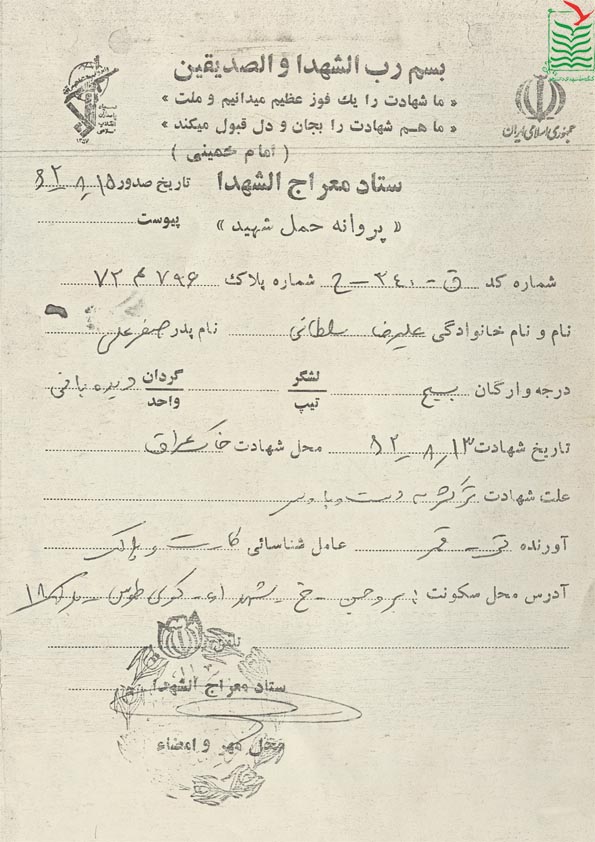 بسم رب الشهدا و الصدیقین
« ما شهادت را یك فوز عظیم میدانیم و ملت »
« ما هم شهادت را بجان و دل قبول میكند »
( امام خمینی )
جمهوری اسلامی ایران
ستاد معراج الشهدا
تاریخ صدور ۱۵ـ۸ـ۶۲
« پروانه حمل شهید »
پیوست
شماره کد ق - ۳۴۰ - ح شماره پلاك ۷۹۶ م ۷۲
نام و نام خانوادگی علیرضا سلطانی نام پدر صفرعلی
درجه و ارگان بسیج لشگر تیپ گردان واحد دیده بانی
تاریخ شهادت ۱۳ـ۸ـ۶۲ محل شهادت خاک عراق
علت شهادت ترکش به دست و پا و سر
آورنده عامل شناسائی کارت و پلاک
آدرس محل سکونت : بروجن - خ - شهدای - کوی طوس - پلاک ۱۸
تلفن
ستاد معراج الشهدا
محل مهر و امضاء